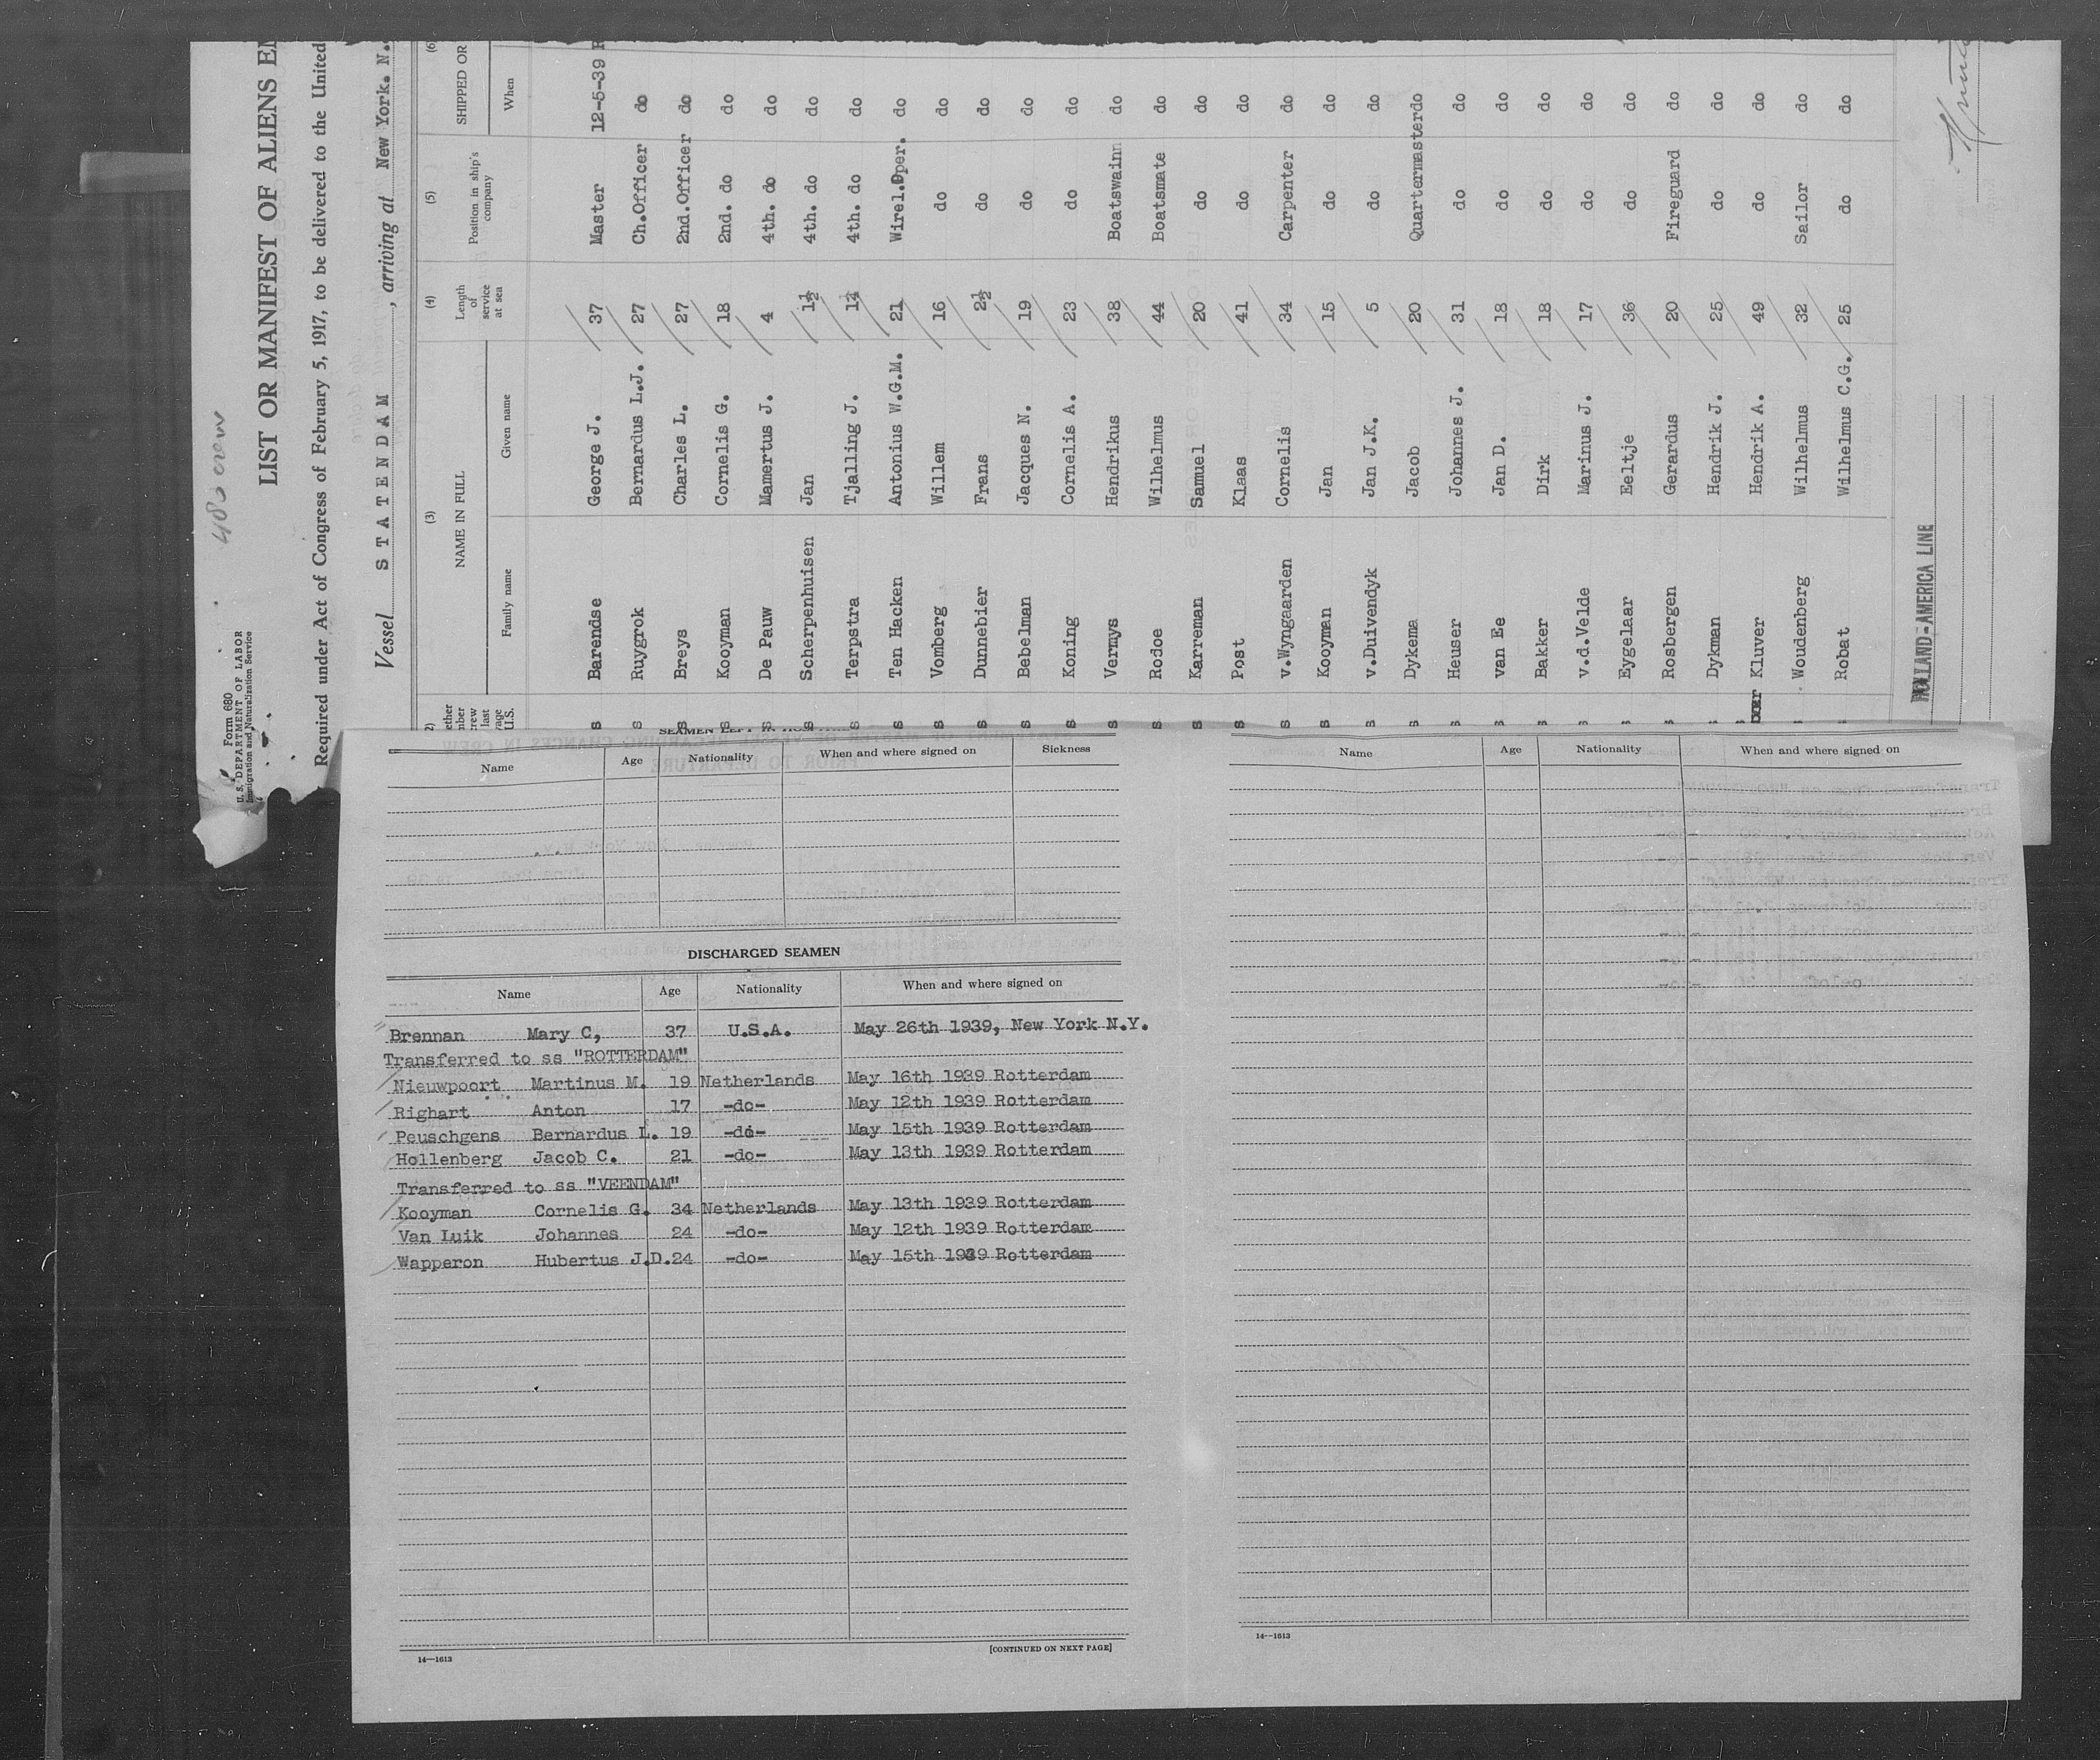 Form 680
U. S. DEPARTMENT OF LABOR
Immigration and Naturalization Service
483 crew
LIST OR MANIFEST OF ALIENS
Required under Act of Congress of February 5, 1917, to be delivered to the United
Vessel STATENDAM, arriving at New York. N.
(3) (4) (5) (6)
NAME IN FULL Length of service at sea Position in ship's company SHIPPED OR
Family name Given name When
s Barendse George J. 37 Master 12-5-39
s Ruygrok Bernardus L.J. 27 Ch.Officer do
s Breys Charles L. 27 2nd.Officer do
s Kooyman Cornelis G. 18 2nd. do do
s De Pauw Mamertus J. 4 4th. do do
s Scherpenhuisen Jan 1½ 4th. do do
s Terpstra Tjalling J. 4th. do do
s Ten Hacken Antonius W.G.M. 21 Wirel.Oper. do
s Vomberg Willem 16 do do
s Dunnebier Frans 2½ do do
s Bebelman Jacques N. 19 do do
s Koning Cornelis A. 23 do do
s Vermys Hendrikus 38 Boatswain do
s Rodoe Wilhelmus 44 Boatsmate do
s Karreman Samuel 20 do do
s Post Klaas 41 do do
s v.Wyngaarden Cornelis 34 Carpenter do
s Kooyman Jan 15 do do
s v.Duivendyk Jan J.K. 5 do do
s Dykema Jacob 20 Quartermaster do
s Heuser Johannes J. 31 do do
s van Ee Jan D. 18 do do
s Bakker Dirk 18 do do
s v.d.Velde Marinus J. 17 do do
s Eygelaar Eeltje 36 do do
s Rosbergen Gerardus 20 Fireguard do
s Dykman Hendrik J. 25 do do
s Kluver Hendrik A. 49 do do
s Woudenberg Wilhelmus 32 Sailor do
s Robat Wilhelmus C.G. 25 do do
HOLLAND-AMERICA LINE
Name Age Nationality When and where signed on Sickness
DISCHARGED SEAMEN
Name Age Nationality When and where signed on
Brennan Mary C, 37 U.S.A. May 26th 1939, New York N.Y.
Transferred to ss "ROTTERDAM"
Nieuwpoort Martinus M. 19 Netherlands May 16th 1939 Rotterdam
Righart Anton 17 -do- May 12th 1939 Rotterdam
Peuschgens Bernardus L. 19 -do- May 15th 1939 Rotterdam
Hollenberg Jacob C. 21 -do- May 13th 1939 Rotterdam
Transferred to ss "VEENDAM"
Kooyman Cornelis G. 34 Netherlands May 13th 1939 Rotterdam
Van Luik Johannes 24 -do- May 12th 1939 Rotterdam
Wapperon Hubertus J.D. 24 -do- May 15th 1939 Rotterdam
14—1613 [CONTINUED ON NEXT PAGE]
Name Age Nationality When and where signed on
14—1613